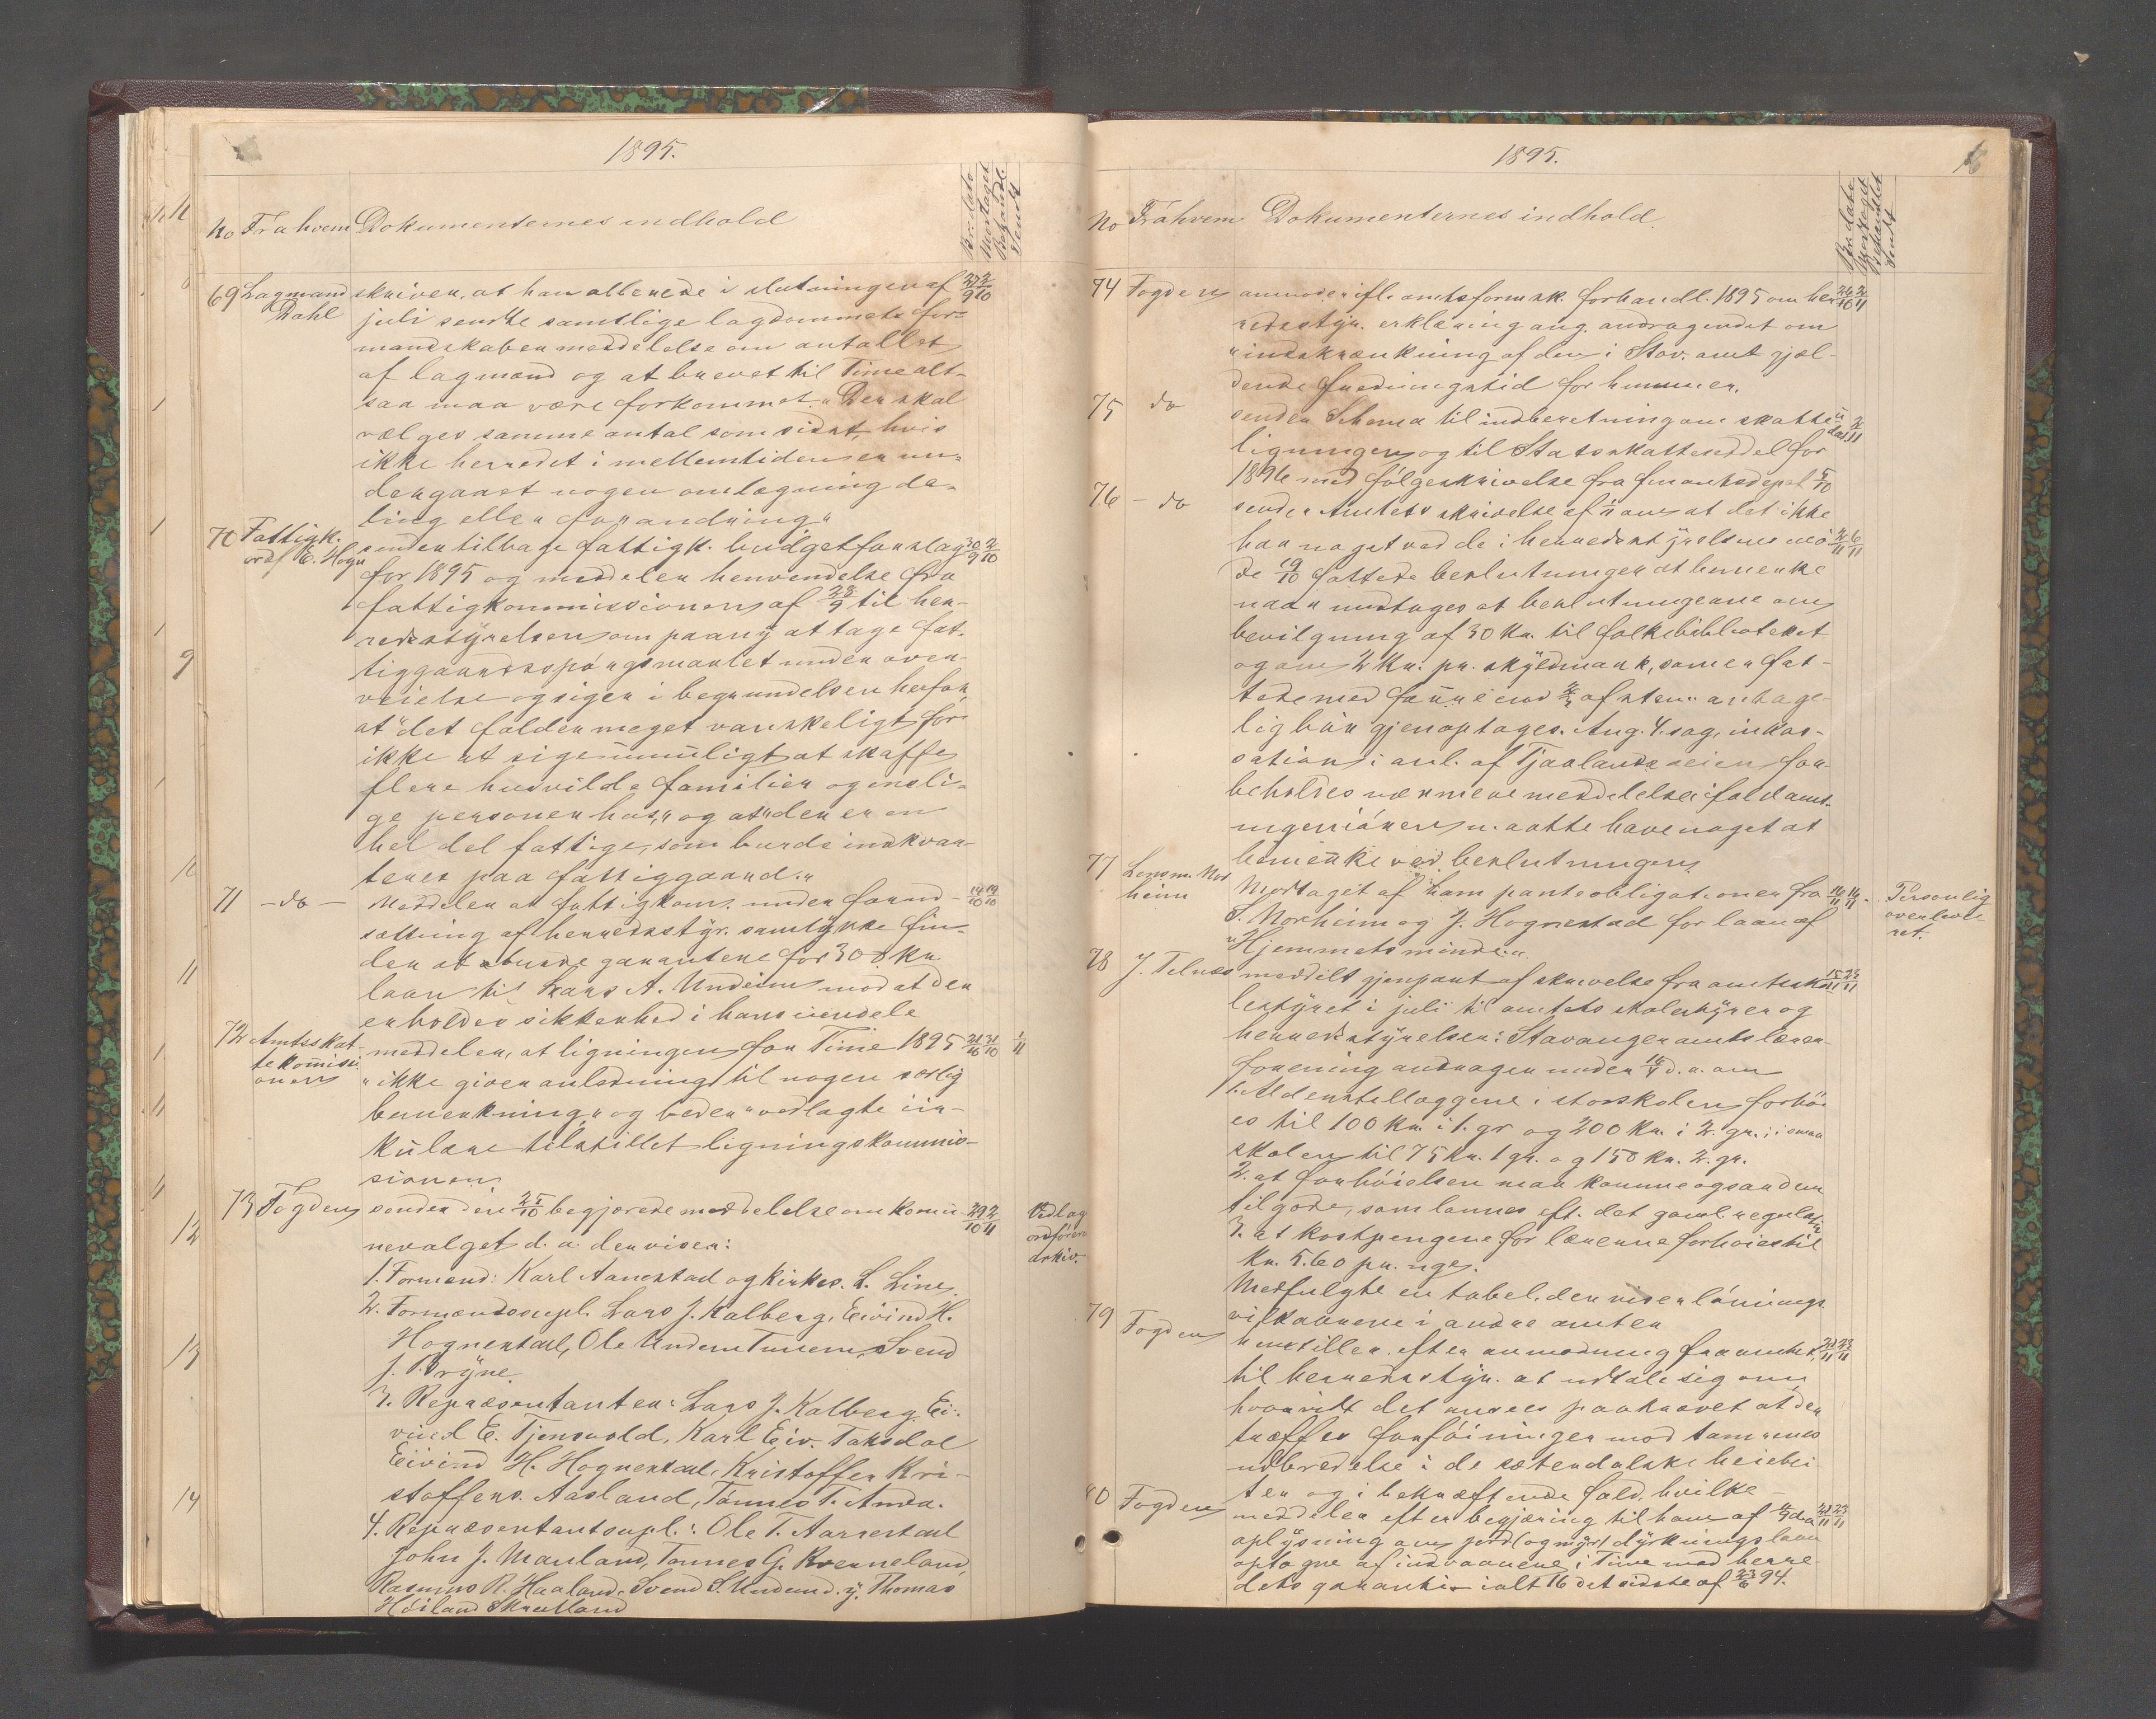 1895.
No Fra hvem Dokumenternes indhold Br. dato Modtaget Behandl. Sendt
69 Lagmand skriver, at han allerede i slutningen af 27/9 2/10
Dahl juli sendte samtlige lagdømmets for-
mandskaber meddelelse om antallet
af lagmænd og at brevet til Time alt-
saa maa være forkommet. "Der skal
vælges samme antal som sidst, hvis
ikke herredet i mellemtiden er un-
dergaaet nogen omlægning de-
ling eller forandring"
70 Fattigk. sender tilbage fattigk. budgetforslag 30/9 2/10
ordf. E. Hogn for 1895 og meddeler henvendelse fra
fattigkommissionen af 28/9 til her-
redsstyrelsen om paany at tage fat-
tiggaardsspørgsmaalet under over-
veielse og siger i begrundelsen herfor,
at "det falder meget vanskeligt for
ikke at sige umuligt at skaffe
flere husvilde familier og ensli-
ge personer hus", og at "der er en
hel del fattige, som burde indkvar-
teres paa fattiggaard."
71 - do - Meddeler at fattigkom. under forud- 14/10 19/10
sætning af herredsstyr. samtykke fin-
der at burde garantere for 300 kr.
laan til Lars A. Undeim mod at den
erholder sikkerhed i hans iendele
72 Amtsskat- meddeler, at ligningen for Time 1895 21/10 31/10 1/11
tekommissi- "ikke giver anledning til nogen særlig
onen bemerkning", og beder "vedlagte cir-
kulære tilstillet ligningskommis-
sionen.
73 Fogden sender den 25/10 begjærede meddelelse om komu- 29/10 2/11 Vedlag
nevalget d. a. der viser: ordførers
arkiv.
1. Formænd: Karl Aanestad og Kirkes. L. Line.
2. Formændssupl. Lars J. Kalberg, Eivind H.
Hognestad, Ole Undem Tunem, Svend
J. Bryne.
3. Repræsentanter: Lars J. Kalberg, Ei-
vind E. Tjensvold, Karl Eiv. Taksdal
Eivind H. Hognestad, Kristoffer Kri-
stoffers. Aasland, Tønnes T. Anda.
4. Repræsentantsupl.: Ole T. Aarrestad
John J. Mauland, Tønnes G. Kverneland,
Rasmus R. Haaland, Svend S. Undem. y. Thomas
Høiland Skretland
1895. 16
No Fra hvem Dokumenternes indhold. Br. dato Modtaget Behandlet Sendt
74 Fogden anmoder ifl. amtsformsk. forhandl. 1895 om her- 26/10 2/11
redsstyr. erklæring ang. andragendet om
"indskrænkning af den i Stav. amt gjæl-
dende fredningstid for hummer.
75 do sender Schema til indberetning om skatte- u. dat. 2/11
ligningen og til Statsskatteseddel for
1896 med følgeskrivelse fra finansdepet 5/10
76 - do sender Amtets skrivelse af om at det ikke
har noget ved de i herredsstyrelsens mø- 2/11 6/11
de 19/10 fattede beslutninger at bemerke
naar undtages at beslutningerne om
bevilgning af 30 kr. til folkebiblioteket
og om 2 kr. pr. skyldmark, som er fat-
tede med færre end af stem. antage-
lig bør gjenoptages. Ang. 4. sag, inkas-
sation i anl. af Tjaalandsveien for-
beholdes nærmere meddelelse ifald amt.
ingeniøren maatte have noget at
bemerke ved beslutningen.
77 Lensm. Nor Modtaget af ham panteobligationer fra 16/11 16/11 - Personlig
heim S. Norheim og J. Hognestad for laan af overleve-
"Hjemmets minde". ret.
78 J. Telnæs meddelt gjenpart af skrivelse fra amtssko- 15/11 23/11
lestyret i juli til amtets skolestyrer og
herredsstyrelser: Stavanger amts lærer-
forening andrager under d. a. om
1. Alderstillæggene i storskolen forhøi-
es til 100 kr. i 1. gr. og 200 kr. i 2. gr.; i smaa
skolen til 75 kr. 1 gr. og 150 kr. 2. gr.
2. at forhøielsen maa komme ogsaa dem
tilgode, som lønnes eft. det gaml. regulativ
3. at kostpengene for lærerne forhøies til
kr. 5.60 pr. uge.
Medfulgte en tabel, der viser lønnings-
vilkaarene i andre amter
79 Fogden henstiller efter anmodning fra amtet, 21/11 23/11
til herredsstyr. at udtale sig om
hvorvidt det ansees paakrævet at der
træffes forføininger mod tamrenes
udbredelse i de sætersdalske heiebei
ter og i bekræftende fald, hvilke -
80 Fogden meddeler efter begjæring til ham af d.a. 21/11 23/11
oplysning om jord (og myr) dyrkningslaan
optagne af indvaanere i Time med herre-
dets garanti - ialt 16 det sidste af 23/6 94.